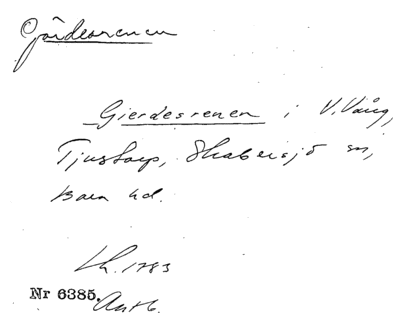 Gärdesrenen
Gierdesrenen i V.Vång,
Tjustorp, Skabersjö sn,
Bara hd.
Lh. 1783
Nr 6385.